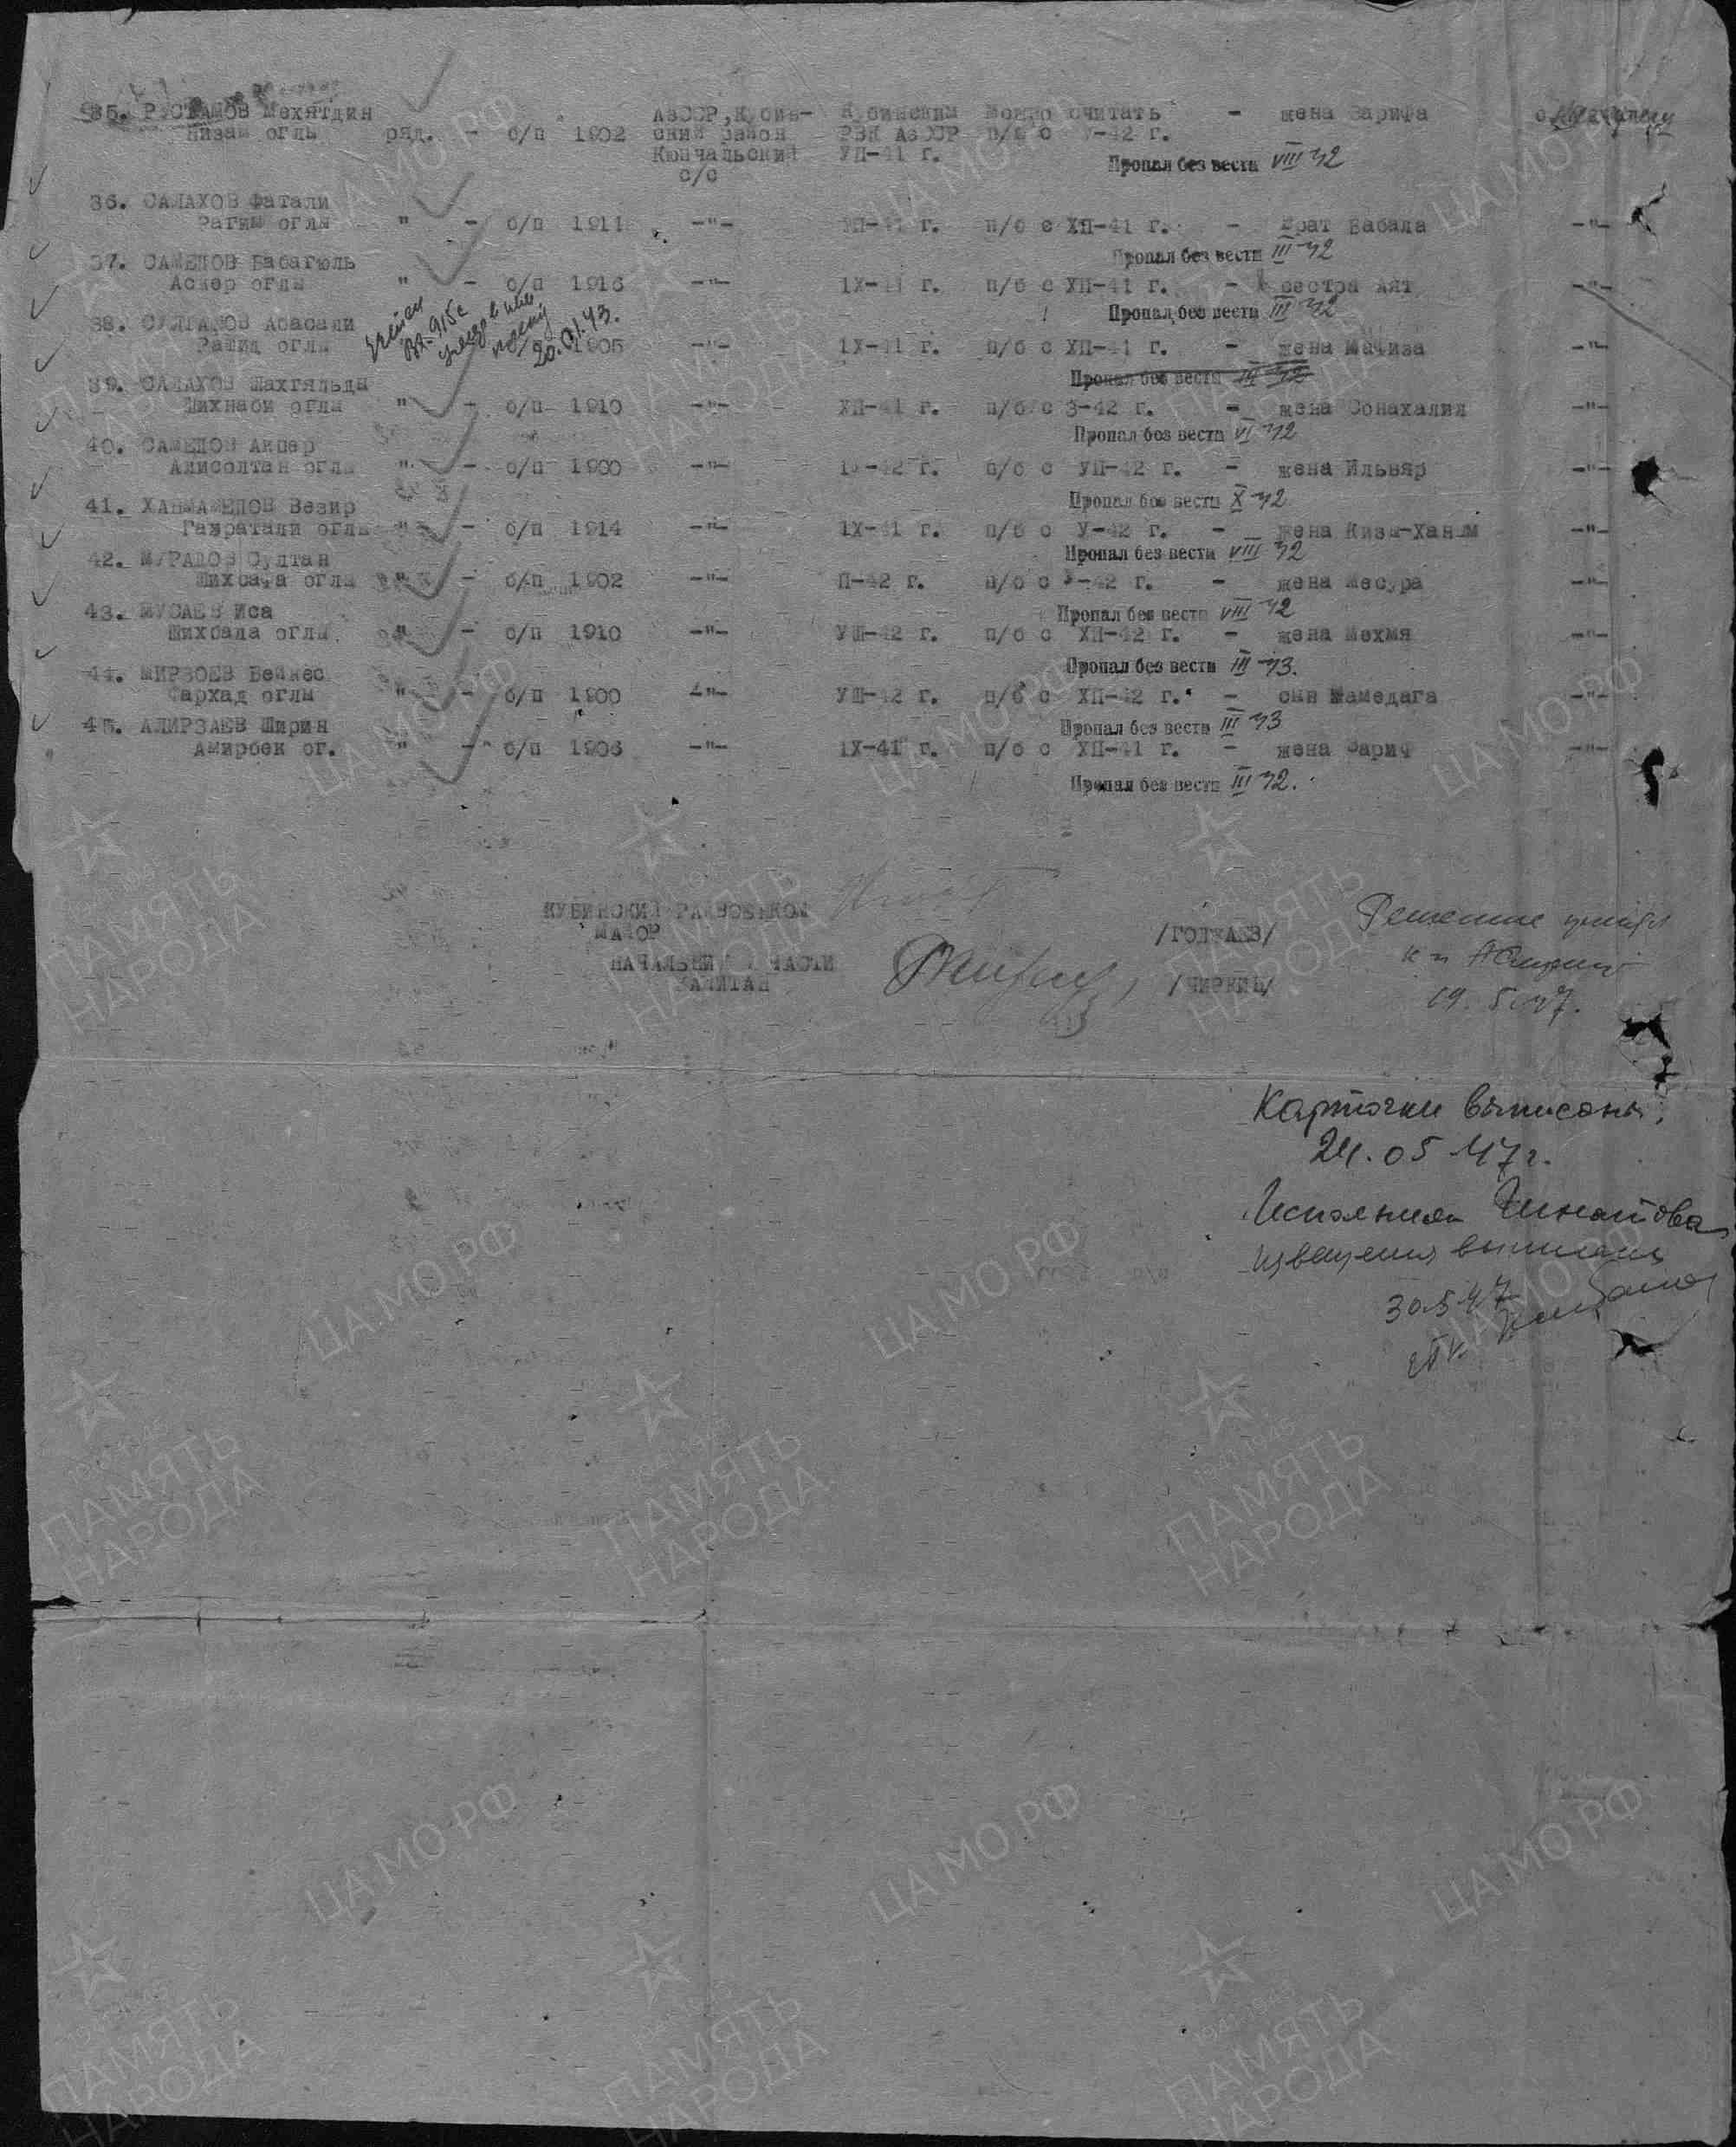 35. РУСТАМОВ Мехятдин АзССР, Кубин- Кубинским Можно считать - жена Зарифа
Низам оглы ряд. - б/п 1902 ский район РВК АзССР п/б с У-42 г.
Кюпчальский УП-41 г. Пропал без вести VIII 42
с/с
36. САЛАХОВ Фатали
Рагим оглы " - б/п 1911 -"- г. п/б с ХП-41 г. - брат Бабала -"-
Пропал без вести III 42
37. САМЕДОВ Бабагюль
Аскер оглы " - б/п 1916 -"- 1Х-41 г. п/б с ХП-41 г. - сестра Аят -"-
Пропал без вести III 42
38. СУЛТАНОВ Абасали
Рашид оглы 20.01.43. 1905 -"- 1Х-41 г. п/б с ХП-41 г. - жена -"-
Пропал без вести III 42
39. САЛАХОВ Шахгяльды
Шихнаби оглы " - б/п 1910 -"- ХП-41 г. п/б с 3-42 г. - жена Сонахалил -"-
Пропал без вести VI 42
40. САМЕДОВ Акпер
Алисолтан оглы " - б/п 1900 -"- -42 г. п/б с УП-42 г. - жена Ильвяр -"-
Пропал без вести X 42
41. ХАНМАМЕДОВ Везир
Газратали оглы " - б/п 1914 -"- 1Х-41 г. п/б с У-42 г. - жена Кизы-Ханым -"-
Пропал без вести VIII 42
42. МУРАДОВ Султан
Шихбаба оглы " - б/п 1902 -"- П-42 г. п/б с -42 г. - жена Месура -"-
Пропал без вести VIII 42
43. МУСАЕВ Иса
Шихбала оглы " - б/п 1910 -"- УШ-42 г. п/б с ХП-42 г. - жена Мехмя -"-
Пропал без вести III 43.
44. МИРЗОЕВ Вейнес
Фархад оглы " - б/п 1900 -"- УШ-42 г. п/б с ХП-42 г. - сын Мамедага -"-
Пропал без вести III 43
45. АЛИРЗАЕВ Ширин
Амирбек ог. " - б/п 1906 -"- 1Х-41 г. п/б с ХП-41 г. - жена Зарич -"-
Пропал без вести III 42.
КУБИНСКИЙ РАЙВОЕНКОМ
МАЙОР /ГОДЖАЕВ/
НАЧАЛЬНИК ЧАСТИ
КАПИТАН /ЧИРКИЦ/
Решение
19.5.47.
Карточки выписаны.
24.05.47 г.
Исполнила
Извещения выписаны
30.5.47
ЦА МО РФ
ПАМЯТЬ
НАРОДА
1941-1945